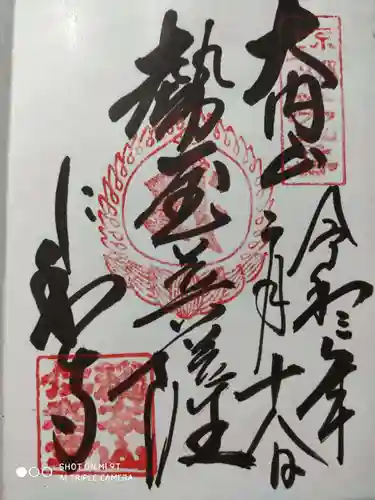 大内山
令和三年
二月十八日
勢至菩薩
仁和寺
SHOT ON MI 9T
AI TRIPLE CAMERA